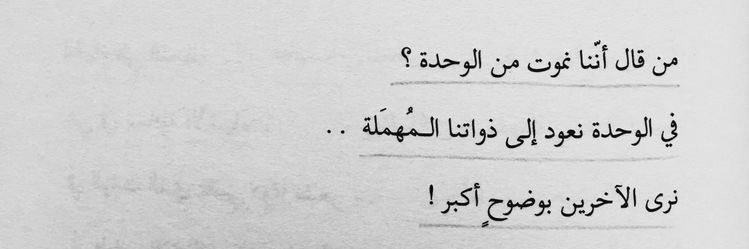 من قال أنّنا نموت من الوحدة ؟
في الوحدة نعود إلى ذواتنا الـمُهمَلة . .
نرى الآخرين بوضوحٍ أكبر !